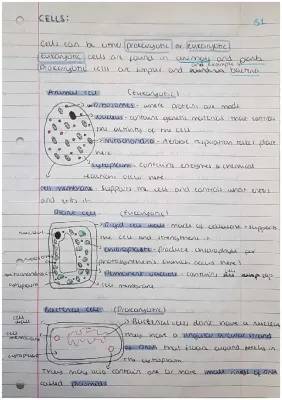 CELLS:
B1
Cells can be either prokaryotic or eukaryotic
Eukaryotic cells are found in animals and plants
Prokaryotic cells are simple and bacteria
Animal cell (Eukaryotic)
Ribosomes - where proteins are made
Nucleus - contains genetic material that controls
the activity of the cell
Mitochondria - Aerobic respiration takes place
here
Cytoplasm - contains enzymes & chemical
reactions occur here
Cell membrane - supports the cell and controls what enters
and exits it
Plant cell (Eukaryotic)
Rigid cell wall - made of cellulose - supports
the cell and strengthens it
Chloroplasts - produce chlorophyll for
photosynthesis (which occurs here)
Permanent vacuole - contains cell sap
cell membrane
nucleus
ribosomes
mitochondria
cytoplasm
Bacterial cell (Prokaryotic)
cell wall
cell membrane
cytoplasm
- Bacterial cells don't have a nucleus
they have a singular circular strand
of DNA that floats around freely in
the cytoplasm
They may also contain one or more small rings of DNA
called plasmids